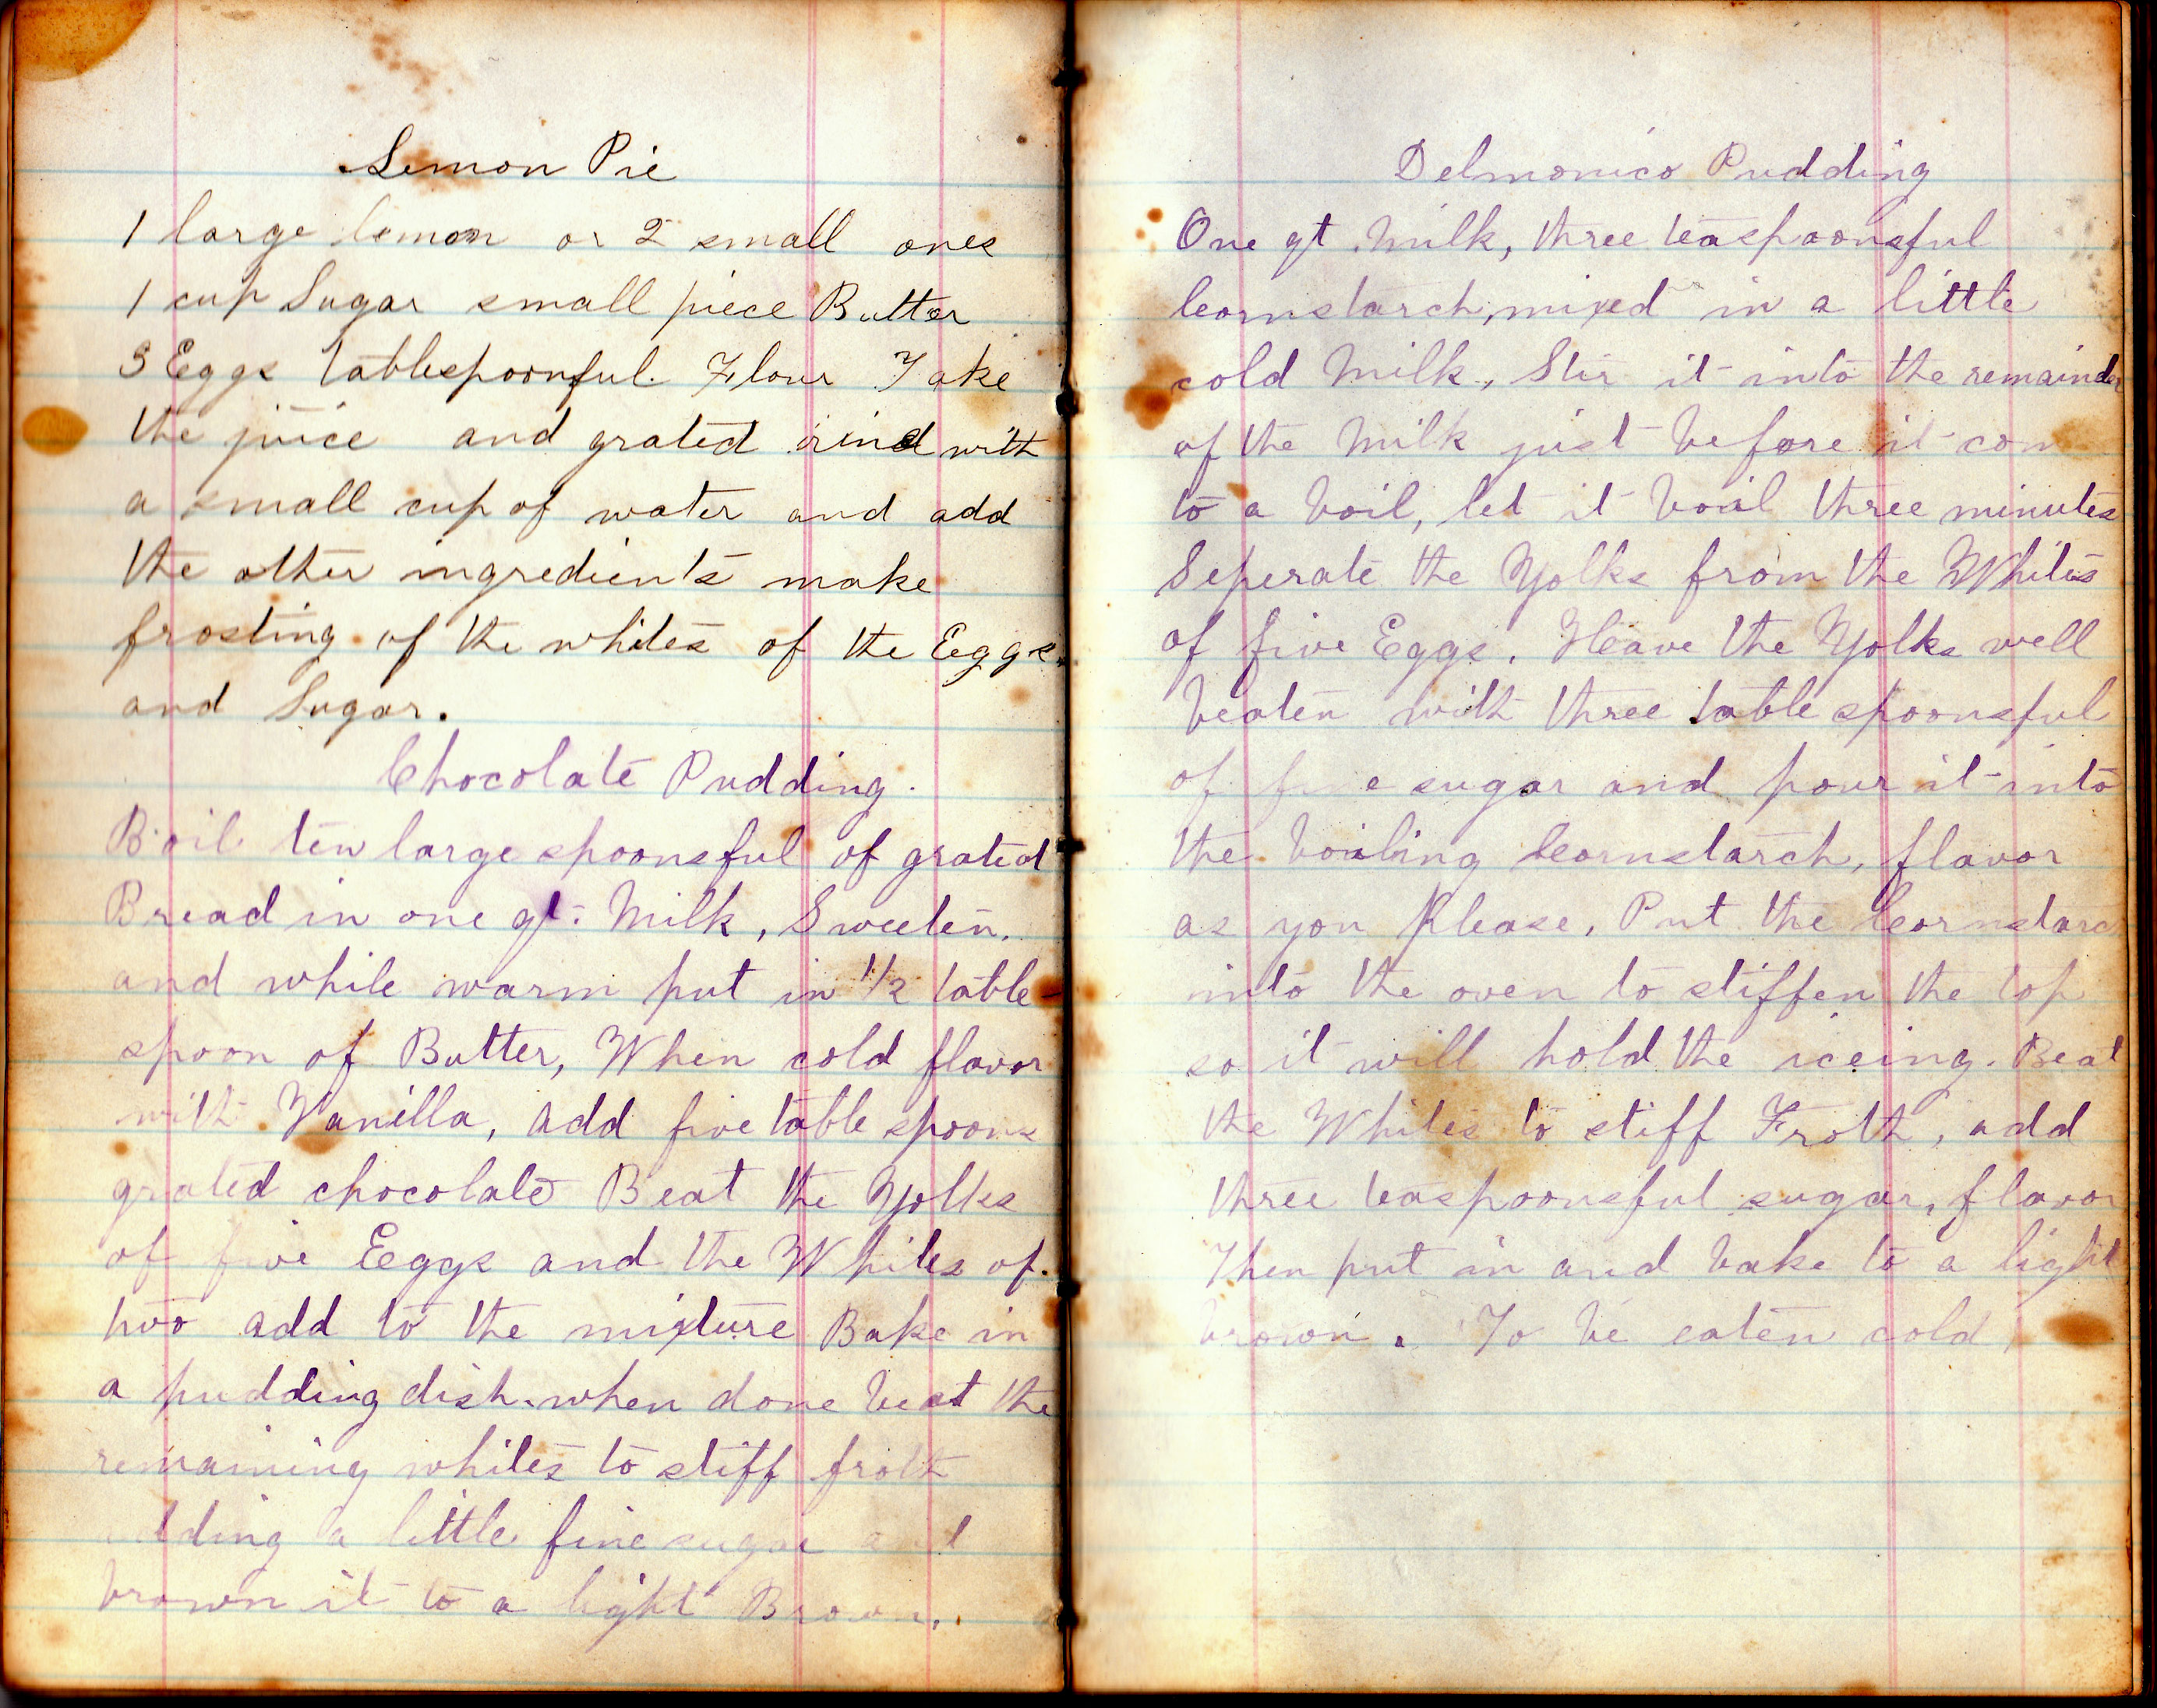 Lemon Pie
1 large lemon or 2 small ones
1 cup Sugar small piece Butter
3 Eggs tablespoonful. Flour Take
the juice and grated rind with
a small cup of water and add
the other ingredients make
frosting of the whites of the Eggs
and Sugar.
Chocolate Pudding.
Boil ten large spoonsful of grated
Bread in one qt. Milk, Sweeten.
and while warm put in 1/2 table-
spoon of Butter, When cold flavor
with Vanilla, add five table spoons
grated chocolate Beat the Yolks
of five Eeggs and the Whites of
two add to the mixture Bake in
a pudding dish. when done beat the
remaining whites to stiff froth
adding a little fine sugar and
brown it to a light Brown.
Delmonico Pudding
One qt Milk, three teaspoonsful
Cornstarch, mixed in a little
cold Milk, Stir it into the remainder
of the Milk just before it com
to a boil, let it boil three minutes
Seperate the Yolks from the Whites
of five Eggs. Heave the Yolks well
beaten with three table spoonsful
of fine sugar and pour it into
the boiling Cornstarch, flavor
as you Please, Put the Cornstarc
into the oven to stiffen the top
so it will hold the iceing. Beat
the Whites to stiff Froth, add
three teaspoonsful sugar, flavor
Then put in and bake to a light
brown. To be eaten cold